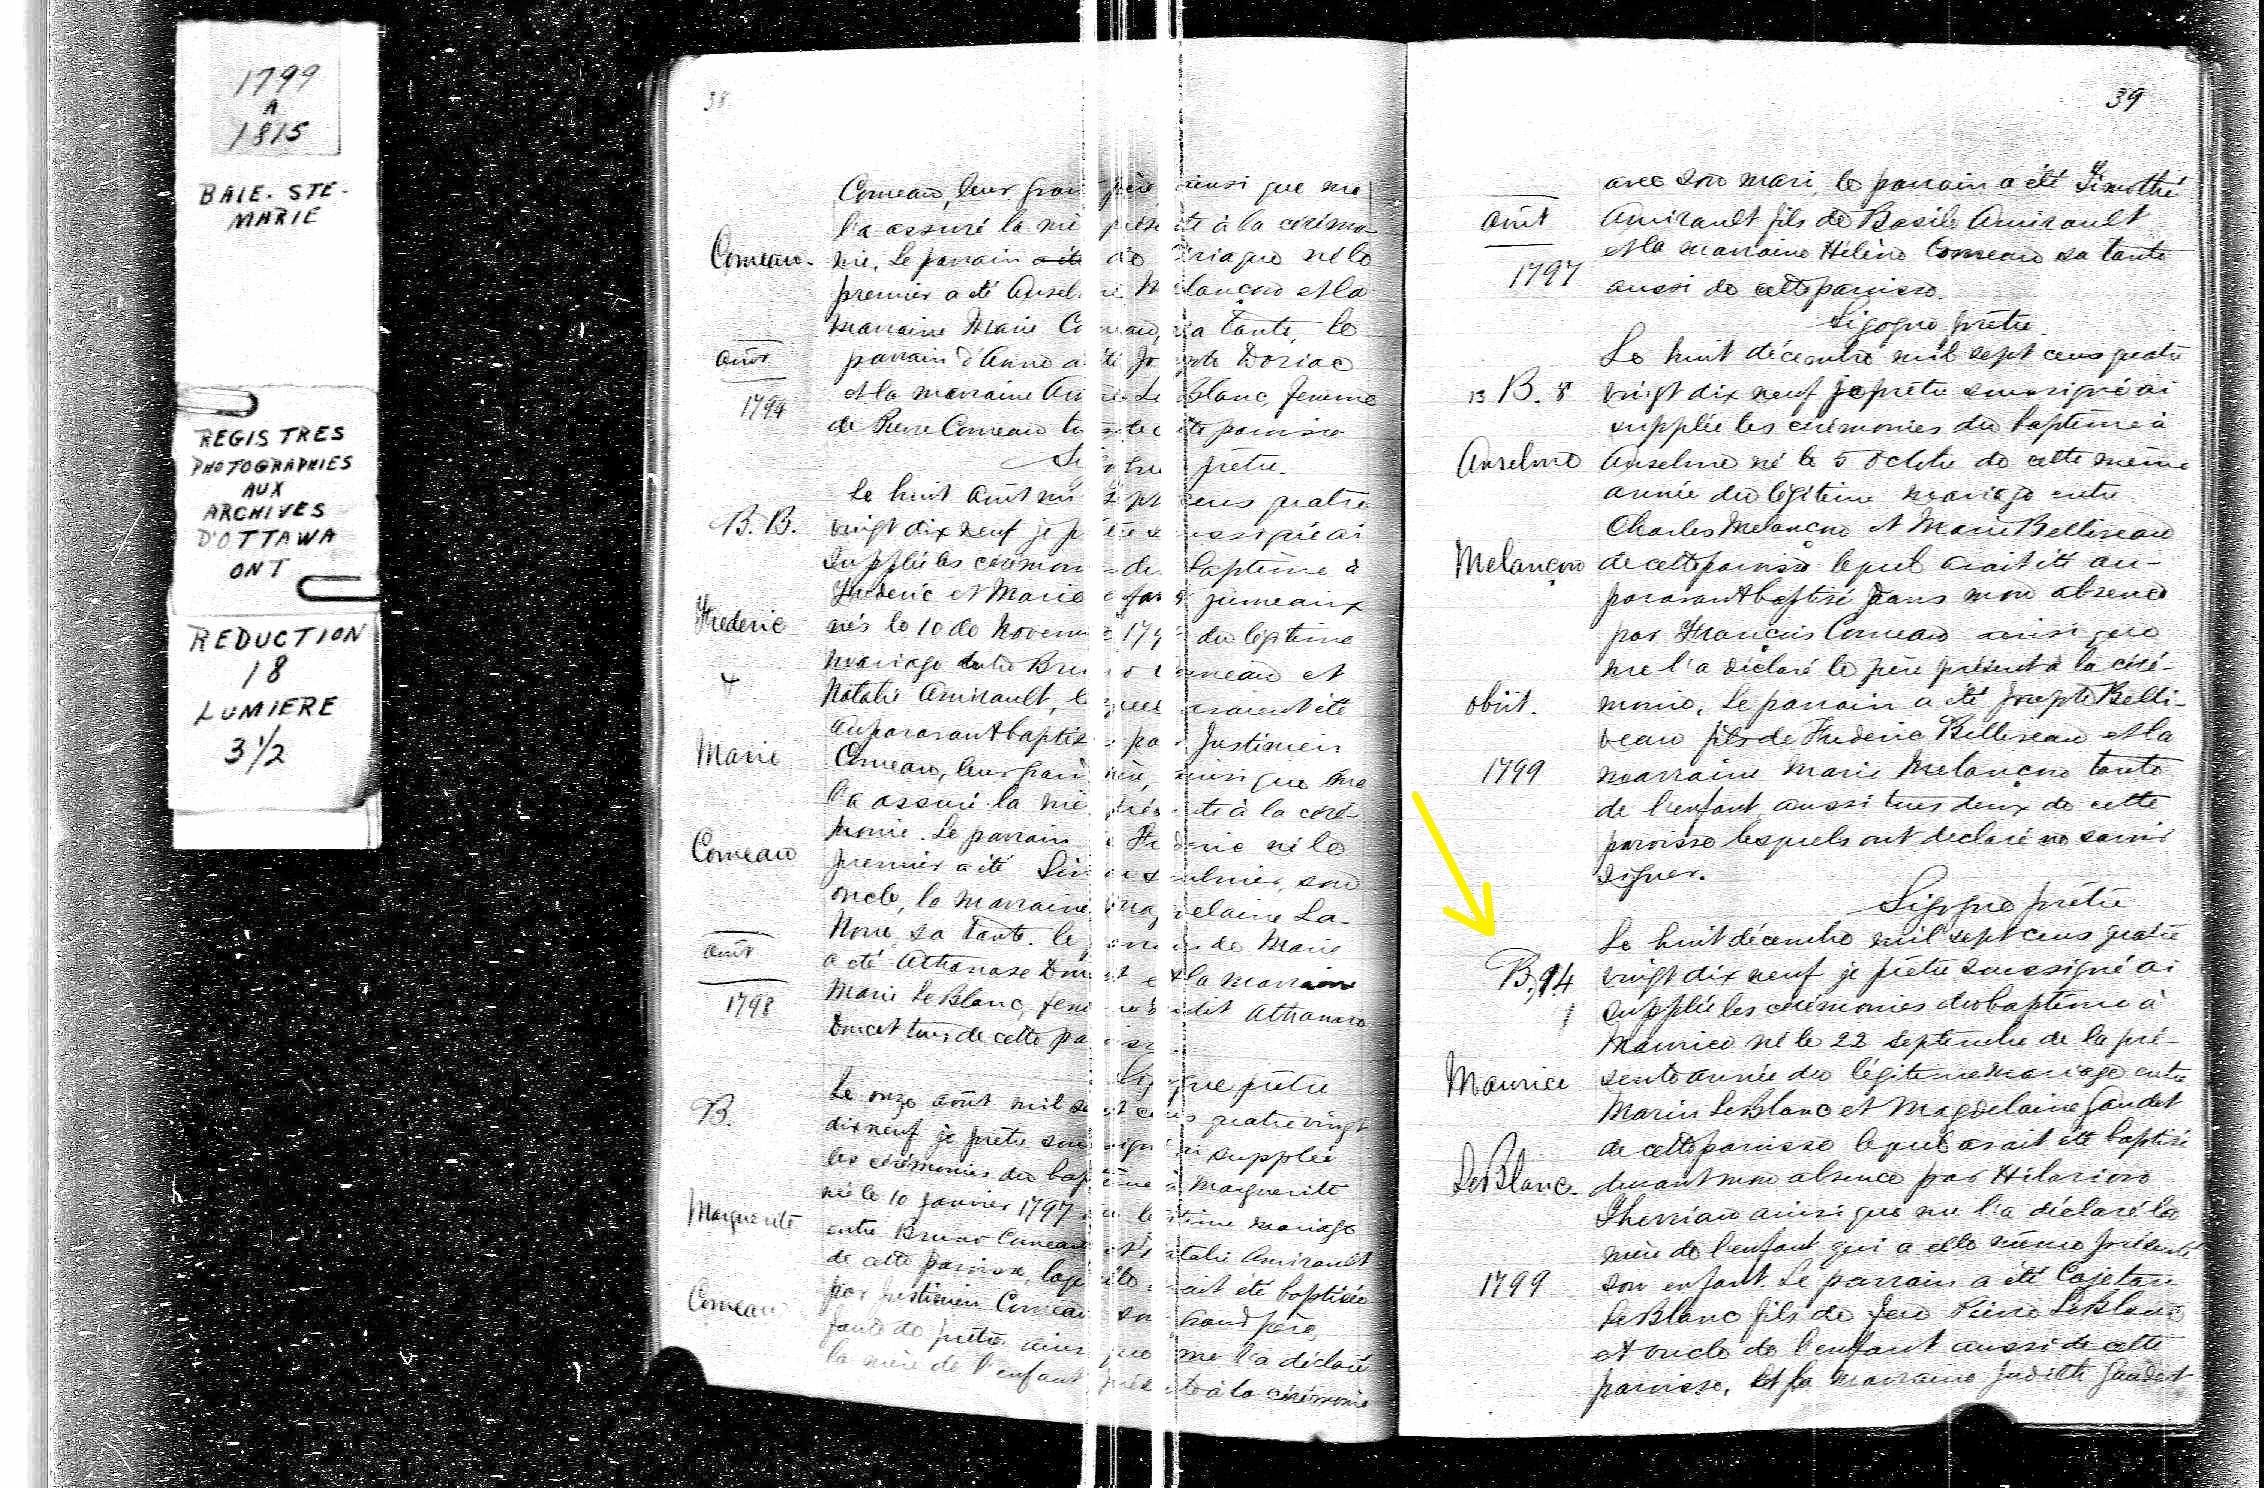 1799
A
1815
BAIE. STE-
MARIE
REGISTRES
PHOTOGRAPHIES
AUX
ARCHIVES
D'OTTAWA
ONT
REDUCTION
18
LUMIERE
3 1/2
38
Comeau, leur grand père ainsi que me
l'a assuré la mère présente à la cérémo-
Comeau. nie. Le parrain a été de né le
premier a été Anselme Melançon et la
marraine Marie Comeau, sa tante, le
août parrain d'Anne a été Joseph Doriac
et la marraine LeBlanc, femme
1799
de Pierre Comeau tous de cette paroisse
Sigogne prêtre.
Le huit Août mil sept cens quatre
B. B. vingt dix neuf je prêtre soussigné ai
supplée les cérémonies du baptême à
Frederic et Marie jumeaux
Frederic nés le 10 de Novembre du légitime
mariage entre Bruno Comeau et
& Natalie Amirault, lesquels avaient été
auparavant baptisés par Justinien
Marie Comeau, leur grand père, ainsi que me
l'a assuré la mère présente à la céré-
monie. Le parrain de Frederic né le
Comeau premier a été son
oncle, la marraine Magdelaine La-
Noue, sa tante. le parrain de Marie
août a été Athanase Doucet et la marraine
1798 Marie LeBlanc, femme dudit Athanase
Doucet tous de cette paroisse.
Sigogne prêtre
Le onze août mil sept cens quatre vingt
B. dix neuf je prêtre soussigné ai supplée
les cérémonies du baptême à Marguerite
né le 10 Janvier 1797 du légitime mariage
Marguerite entre Bruno Comeau et Natalie Amirault
de cette paroisse, laquelle avait été baptisée
Comeau par Justinien Comeau son grand père,
faute de prêtre ainsi que me l'a déclaré
la mère de l'enfant présente à la cérémonie
39
avec son mari, le parrain a été Timothé
août Amirault fils de Basile Amirault
et la marraine Hélène Comeau sa tante
1797 aussi de cette paroisse.
Sigogne prêtre
Le huit décembre mil sept cens quatre
13 B. 8 vingt dix neuf je prêtre soussigné ai
supplée les cérémonies du baptême à
Anselme Anselme né le 5 Octobre de cette même
année du légitime mariage entre
Charles Melançon et Marie Belliveau
Melançon de cette paroisse lequel avait été au-
paravant baptisé dans mon absence
par François Comeau ainsi que
me l'a déclaré le père présent à la céré-
obiit. monie. Le parrain a été Joseph Belli-
veau fils de Frederic Belliveau et la
1799 marraine Marie Melançon tante
de l'enfant aussi tous deux de cette
paroisse lesquels ont déclaré ne savoir
signer.
Sigogne prêtre
Le huit décembre mil sept cens quatre
B. 14 vingt dix neuf je prêtre soussigné ai
supplée les cérémonies du baptême à
Maurice né le 22 septembre de la pré-
Maurice sente année du légitime mariage entre
Marin LeBlanc et Magdelaine Gaudet
de cette paroisse lequel avait été baptisé
LeBlanc. durant mon absence par Hilarion
Therriau ainsi que me l'a déclaré la
mère de l'enfant qui a elle même présenté
1799 son enfant. Le parrain a été Cajetan
LeBlanc fils de feu Pierre LeBlanc
et oncle de l'enfant aussi de cette
paroisse, et la marraine Judith Gaudet